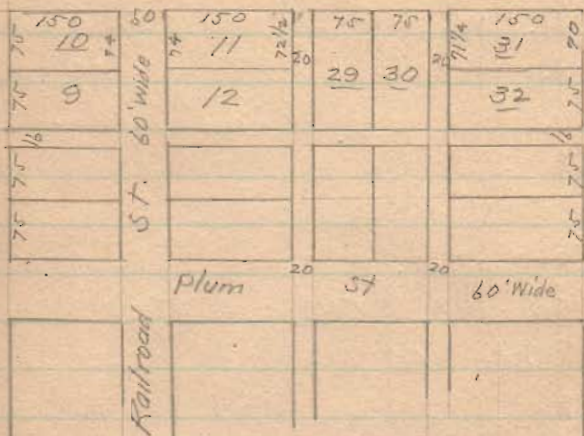 150 50 150 75 75 150
75 10 74 74 11 72½ 20 29 30 20 71¼ 31 70
75 9 12 32 75
16 16
75 75
75 75
Railroad St. 60' wide
20 20
Plum St 60' Wide